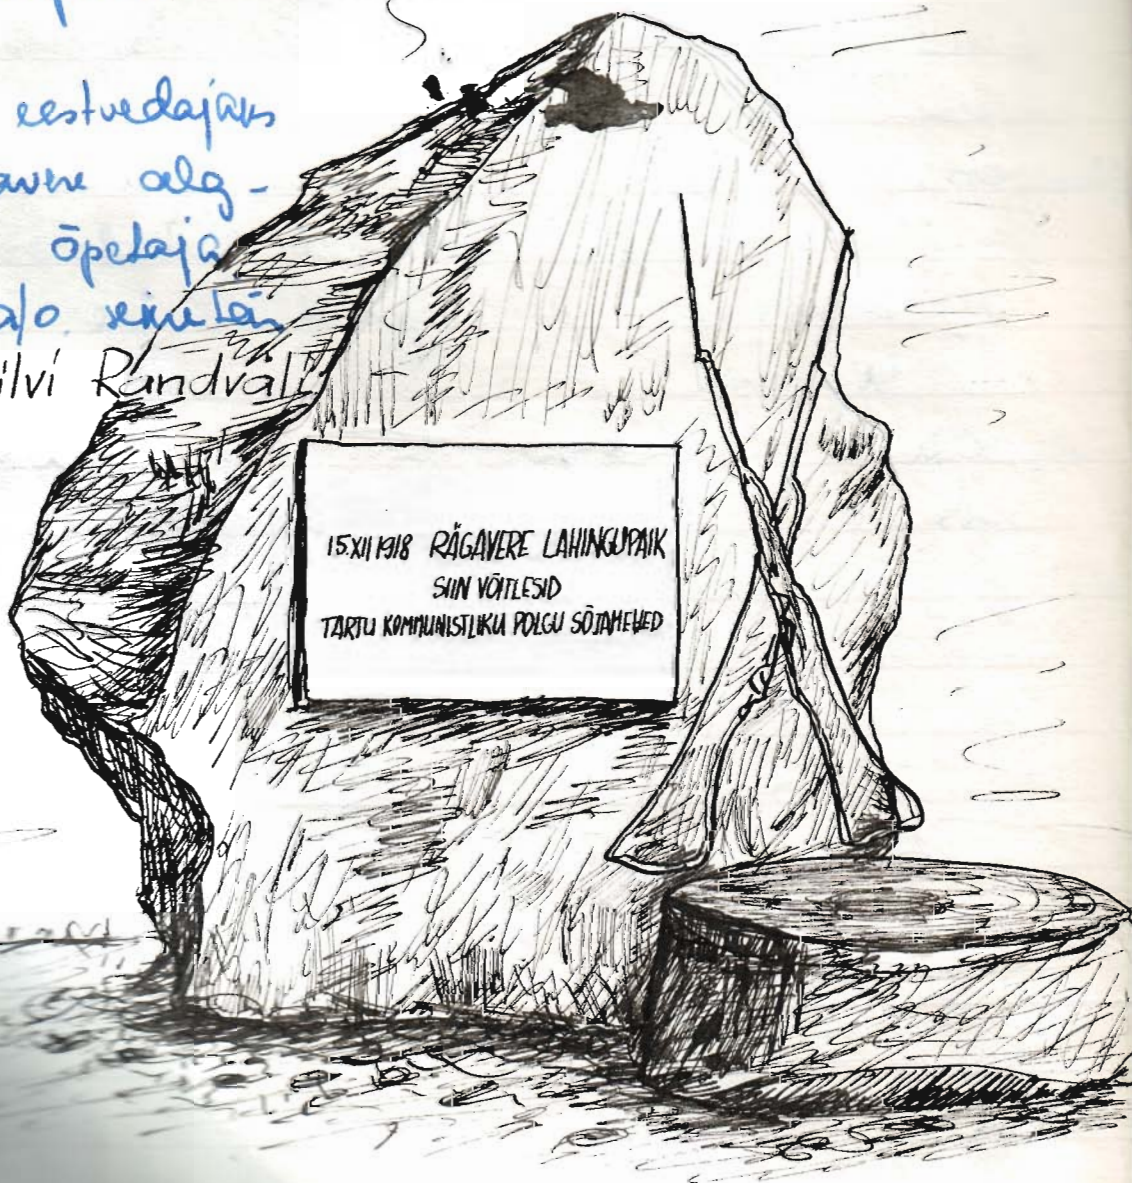 eestvedajaks
avere alg-
õpetaja
a/o
ilvi Randväli
15.XII 1918 RÄGAVERE LAHINGUPAIK
SIIN VÕITLESID
TARTU KOMMUNISTLIKU POLGU SÕJAMEHED